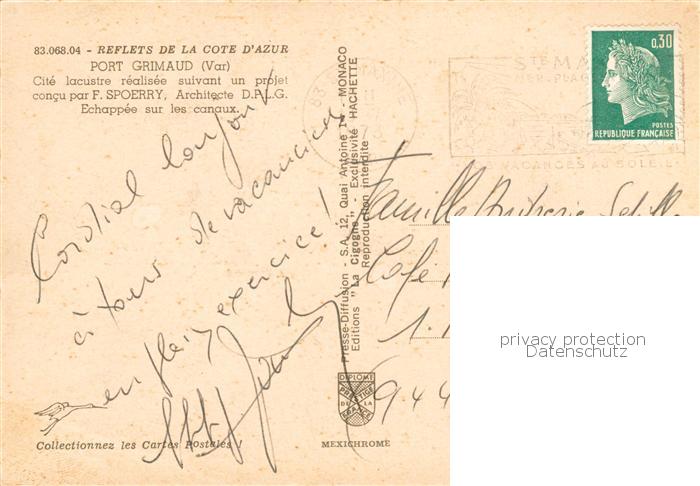 83.068.04 - REFLETS DE LA COTE D'AZUR
PORT GRIMAUD (Var)
Cité lacustre réalisée suivant un projet
conçu par F. SPOERRY, Architecte D.P.L.G.
Echappée sur les canaux.
Cordial bonjour
à tous de vacanciers
en plein exercice !
Collectionnez les Cartes Postales !
Presse-Diffusion - S.A. 12, Quai Antoine 1er - MONACO
Editions "La Cigogne" - Exclusivité HACHETTE
Reproduction interdite
DIPLOME
PRESTIGE
DE LA
FRANCE
MEXICHROME
0,30
POSTES
REPUBLIQUE FRANÇAISE
STE MA
MER-PLAG
VACANCES AU SOLEIL
83
Famille
Café
1.
944
privacy protection
Datenschutz